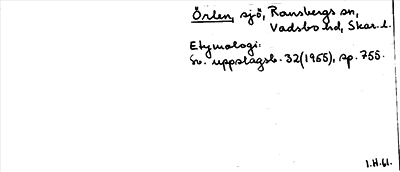 Örlen, sjö, Ransbergs sn,
Vadsbo hd, Skar. l.
Etymologi:
Sv. uppslagsb. 32 (1955), sp. 755.
1.H.61.